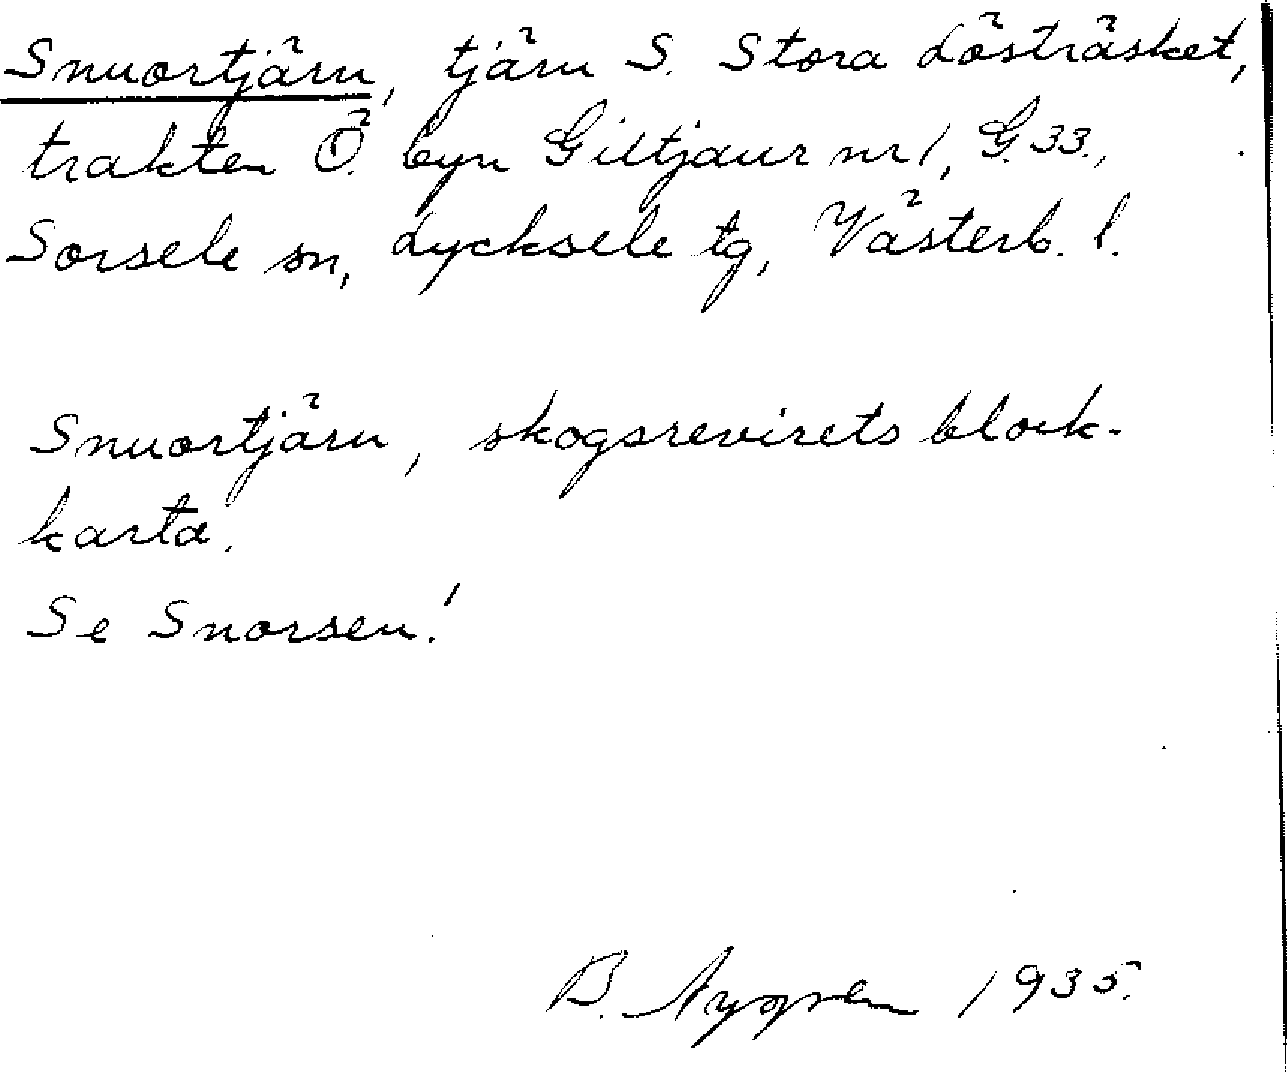 Snuortjärn, tjärn S. Stora Lösträsket,
trakten Ö. byn Giltjaur nr 1, G. 33.,
Sorsele sn, Lycksele tg, Västerb. l.
Snuortjärn, skogsrevirets block-
karta.
Se Snorsen!
B. Nygren 1935.